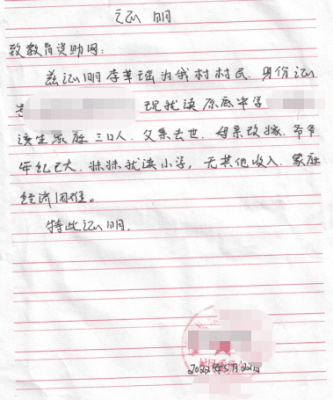 证明
致教育资助网：
兹证明李苹瑶为我村村民，身份证
现就读原底中学
该生家庭三口人，父亲去世，母亲改嫁，爷爷
年纪已大，妹妹就读小学，无其他收入，家庭
经济困难。
特此证明。
2022年5月22日